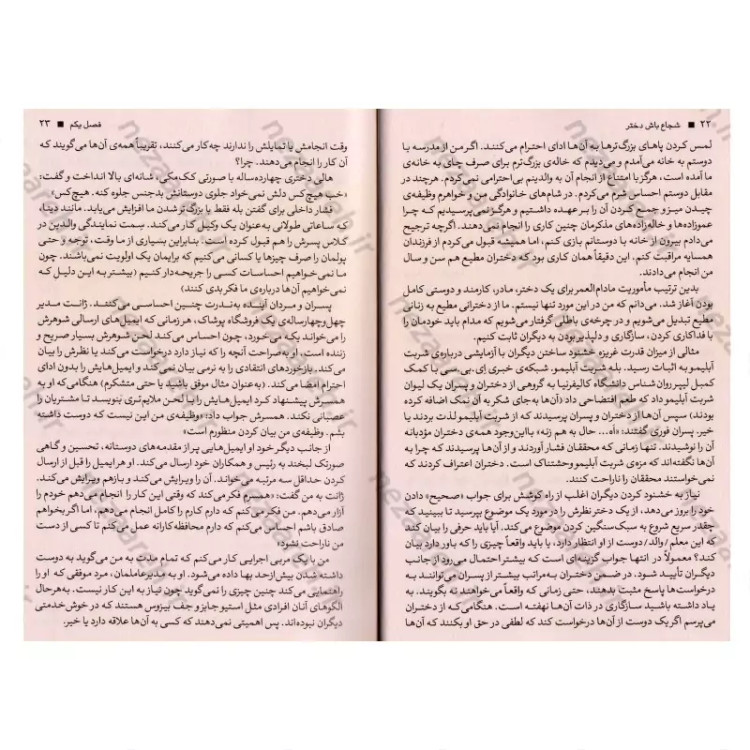 ۲۲ ■ شجاع باش دختر
لمس کردن پاهای بزرگ‌ترها به آن‌ها ادای احترام می‌کنند. اگر من از مدرسه با
دوستم به خانه می‌آمدم و می‌دیدم که خاله‌ی بزرگ‌ترم برای صرف چای به خانه‌ی
ما آمده است، هرگز با امتناع از انجام آن به والدینم بی‌احترامی نمی‌کردم. هرچند در
مقابل دوستم احساس شرم می‌کردم. در شام‌های خانوادگی من و خواهرم وظیفه‌ی
چیدن میز و جمع کردن آن را بر عهده داشتیم و هرگز نمی‌پرسیدیم که چرا
عموزاده‌ها و خاله‌زاده‌های مذکرمان چنین کاری را انجام نمی‌دهند. اگرچه ترجیح
می‌دادم بیرون از خانه با دوستانم بازی کنم، اما همیشه قبول می‌کردم از فرزندان
همسایه مراقبت کنم، این دقیقاً همان کاری بود که دختران مطیع هم سن و سال
من انجام می‌دادند.
بدین ترتیب مأموریت مادام‌العمر برای یک دختر، مادر، کارمند و دوستی کامل
بودن آغاز شد. می‌دانم که من در این مورد تنها نیستم. ما از دخترانی مطیع به زنانی
مطیع تبدیل می‌شویم و در چرخه‌ی باطلی گرفتار می‌شویم که مدام باید خودمان را
با فداکاری کردن، سازگاری و دلپذیر بودن به دیگران ثابت کنیم.
مثالی از میزان قدرت غریزه خشنود ساختن دیگران با آزمایشی درباره‌ی شربت
آبلیمو به اثبات رسید. بله شربت آبلیمو. شبکه‌ی خبری اِی.بی.سی با کمک
کمبل لیپر روان‌شناس دانشگاه کالیفرنیا به گروهی از دختران و پسران یک لیوان
شربت آبلیمو داد که طعم افتضاحی داد (آن‌ها به‌جای شکر به آن نمک اضافه کرده
بودند) سپس آن‌ها از دختران و پسران پرسیدند که از شربت آبلیمو لذت بردند یا
خیر. پسران فوری گفتند: «اَه... حال به هم زنه» بااین‌وجود همه‌ی دختران مؤدبانه
آن را نوشیدند. تنها زمانی که محققان فشار آوردند و از آن‌ها پرسیدند که چرا به
آن‌ها نگفته‌اند که مزه‌ی شربت آبلیمو وحشتناک است. دختران اعتراف کردند که
نمی‌خواستند محققان را ناراحت کنند.
نیاز به خشنود کردن دیگران اغلب از راه کوشش برای جواب «صحیح» دادن
خود را بروز می‌دهد، از یک دختر نظرش را در مورد یک موضوع بپرسید تا ببینید که
چقدر سریع شروع به سبک‌سنگین کردن موضوع می‌کند. آیا باید حرفی را بیان کند
که این معلم/والد/دوست از او انتظار دارد، یا باید واقعاً چیزی را که باور دارد بیان
کند؟ معمولاً در انتها جواب گزینه‌ای است که بیشتر احتمال می‌رود از جانب
دیگران تأیید شود. در ضمن دختران به مراتب بیشتر از پسران می‌توانند به
درخواست‌ها پاسخ مثبت بدهند، حتی زمانی که واقعاً می‌خواهند نه بگویند. به
یاد داشته باشید سازگاری در ذات آن‌ها نهفته است. هنگامی که از دختران
می‌پرسم اگر یک دوست از آن‌ها درخواست کند که لطفی در حق او بکنند که آن‌ها
فصل یکم ■ ۲۳
وقت انجامش یا تمایلش را ندارند چه‌کار می‌کنند، تقریباً همه‌ی آن‌ها می‌گویند که
آن کار را انجام می‌دهند. چرا؟
هالی دختری چهارده‌ساله با صورتی کک‌مکی، شانه‌ای بالا انداخت و گفت:
«خب هیچ‌کس دلش نمی‌خواد جلوی دوستانش بدجنس جلوه کنه. هیچ‌کس»
فشار داخلی برای گفتن بله فقط با بزرگ‌تر شدن ما افزایش می‌یابد. مانند دینا،
که ساعاتی طولانی به‌عنوان یک وکیل کار می‌کند. سمت نمایندگی والدین در
کلاس پسرش را هم قبول کرده است. بنابراین بسیاری از ما وقت، توجه و حتی
پولمان را صرف چیزها یا کسانی می‌کنیم که برایمان یک اولویت نمی‌باشند. چون
ما نمی‌خواهیم احساسات کسی را جریحه‌دار کنیم (بیشتر به این دلیل که
نمی‌خواهیم آن‌ها درباره‌ی ما فکر بدی کنند)
پسران و مردان آینده به‌ندرت چنین احساسی می‌کنند. ژانت مدیر
چهل‌وچهارساله‌ی یک فروشگاه پوشاک، هر زمانی که ایمیل‌های ارسالی شوهرش
را می‌خواند یکه می‌خورد، چون احساس می‌کند لحن شوهرش بسیار صریح و
زننده است، او به‌صراحت آنچه را که نیاز دارد درخواست می‌کند یا نظرش را بیان
می‌کند. بازخوردهای انتقادی را به نرمی بیان نمی‌کند و ایمیل‌هایش را بدون ادای
احترام امضا می‌کند. (به‌عنوان مثال موفق باشید یا حتی متشکرم) هنگامی‌که او به
همسرش پیشنهاد کرد ایمیل‌هایش را با لحن ملایم‌تری بنویسد تا مشتریان را
عصبانی نکند. همسرش جواب داد: «وظیفه‌ی من این نیست که دوست داشته
بشم. وظیفه‌ی من بیان کردن منظورم است»
از جانب دیگر خود او ایمیل‌هایی پر از مقدمه‌های دوستانه، تحسین و گاهی
صورتک لبخند به رئیس و همکاران خود ارسال می‌کند. او هر ایمیل را قبل از ارسال
کردن حداقل سه مرتبه می‌خواند. آن را ویرایش می‌کند و بازهم ویرایش می‌کند.
ژانت به من گفت: «همسرم فکر می‌کند که وقتی این کار را انجام می‌دهم خودم را
آزار می‌دهم. من فکر می‌کنم که دارم کارم را کامل انجام می‌دهم. اما اگر بخواهم
صادق باشم احساس می‌کنم که دارم محافظه‌کارانه عمل می‌کنم تا کسی از دست
من ناراحت نشود»
من با یک مربی اجرایی کار می‌کنم که تمام مدت به من می‌گوید به دوست
داشته شدن بیش‌ازحد بها داده می‌شود. او به مدیرعاملمان، مرد موفقی که او را
راهنمایی می‌کند چنین چیزی را نمی‌گوید چون نیاز به این کار نیست. به‌هرحال
الگوهای آنان افرادی مثل استیو جابز و جف بیزوس هستند که در خوش‌خدمتی
دیگران نبوده‌اند. پس اهمیتی نمی‌دهند که کسی به آن‌ها علاقه دارد یا خیر.
nezaareh.ir